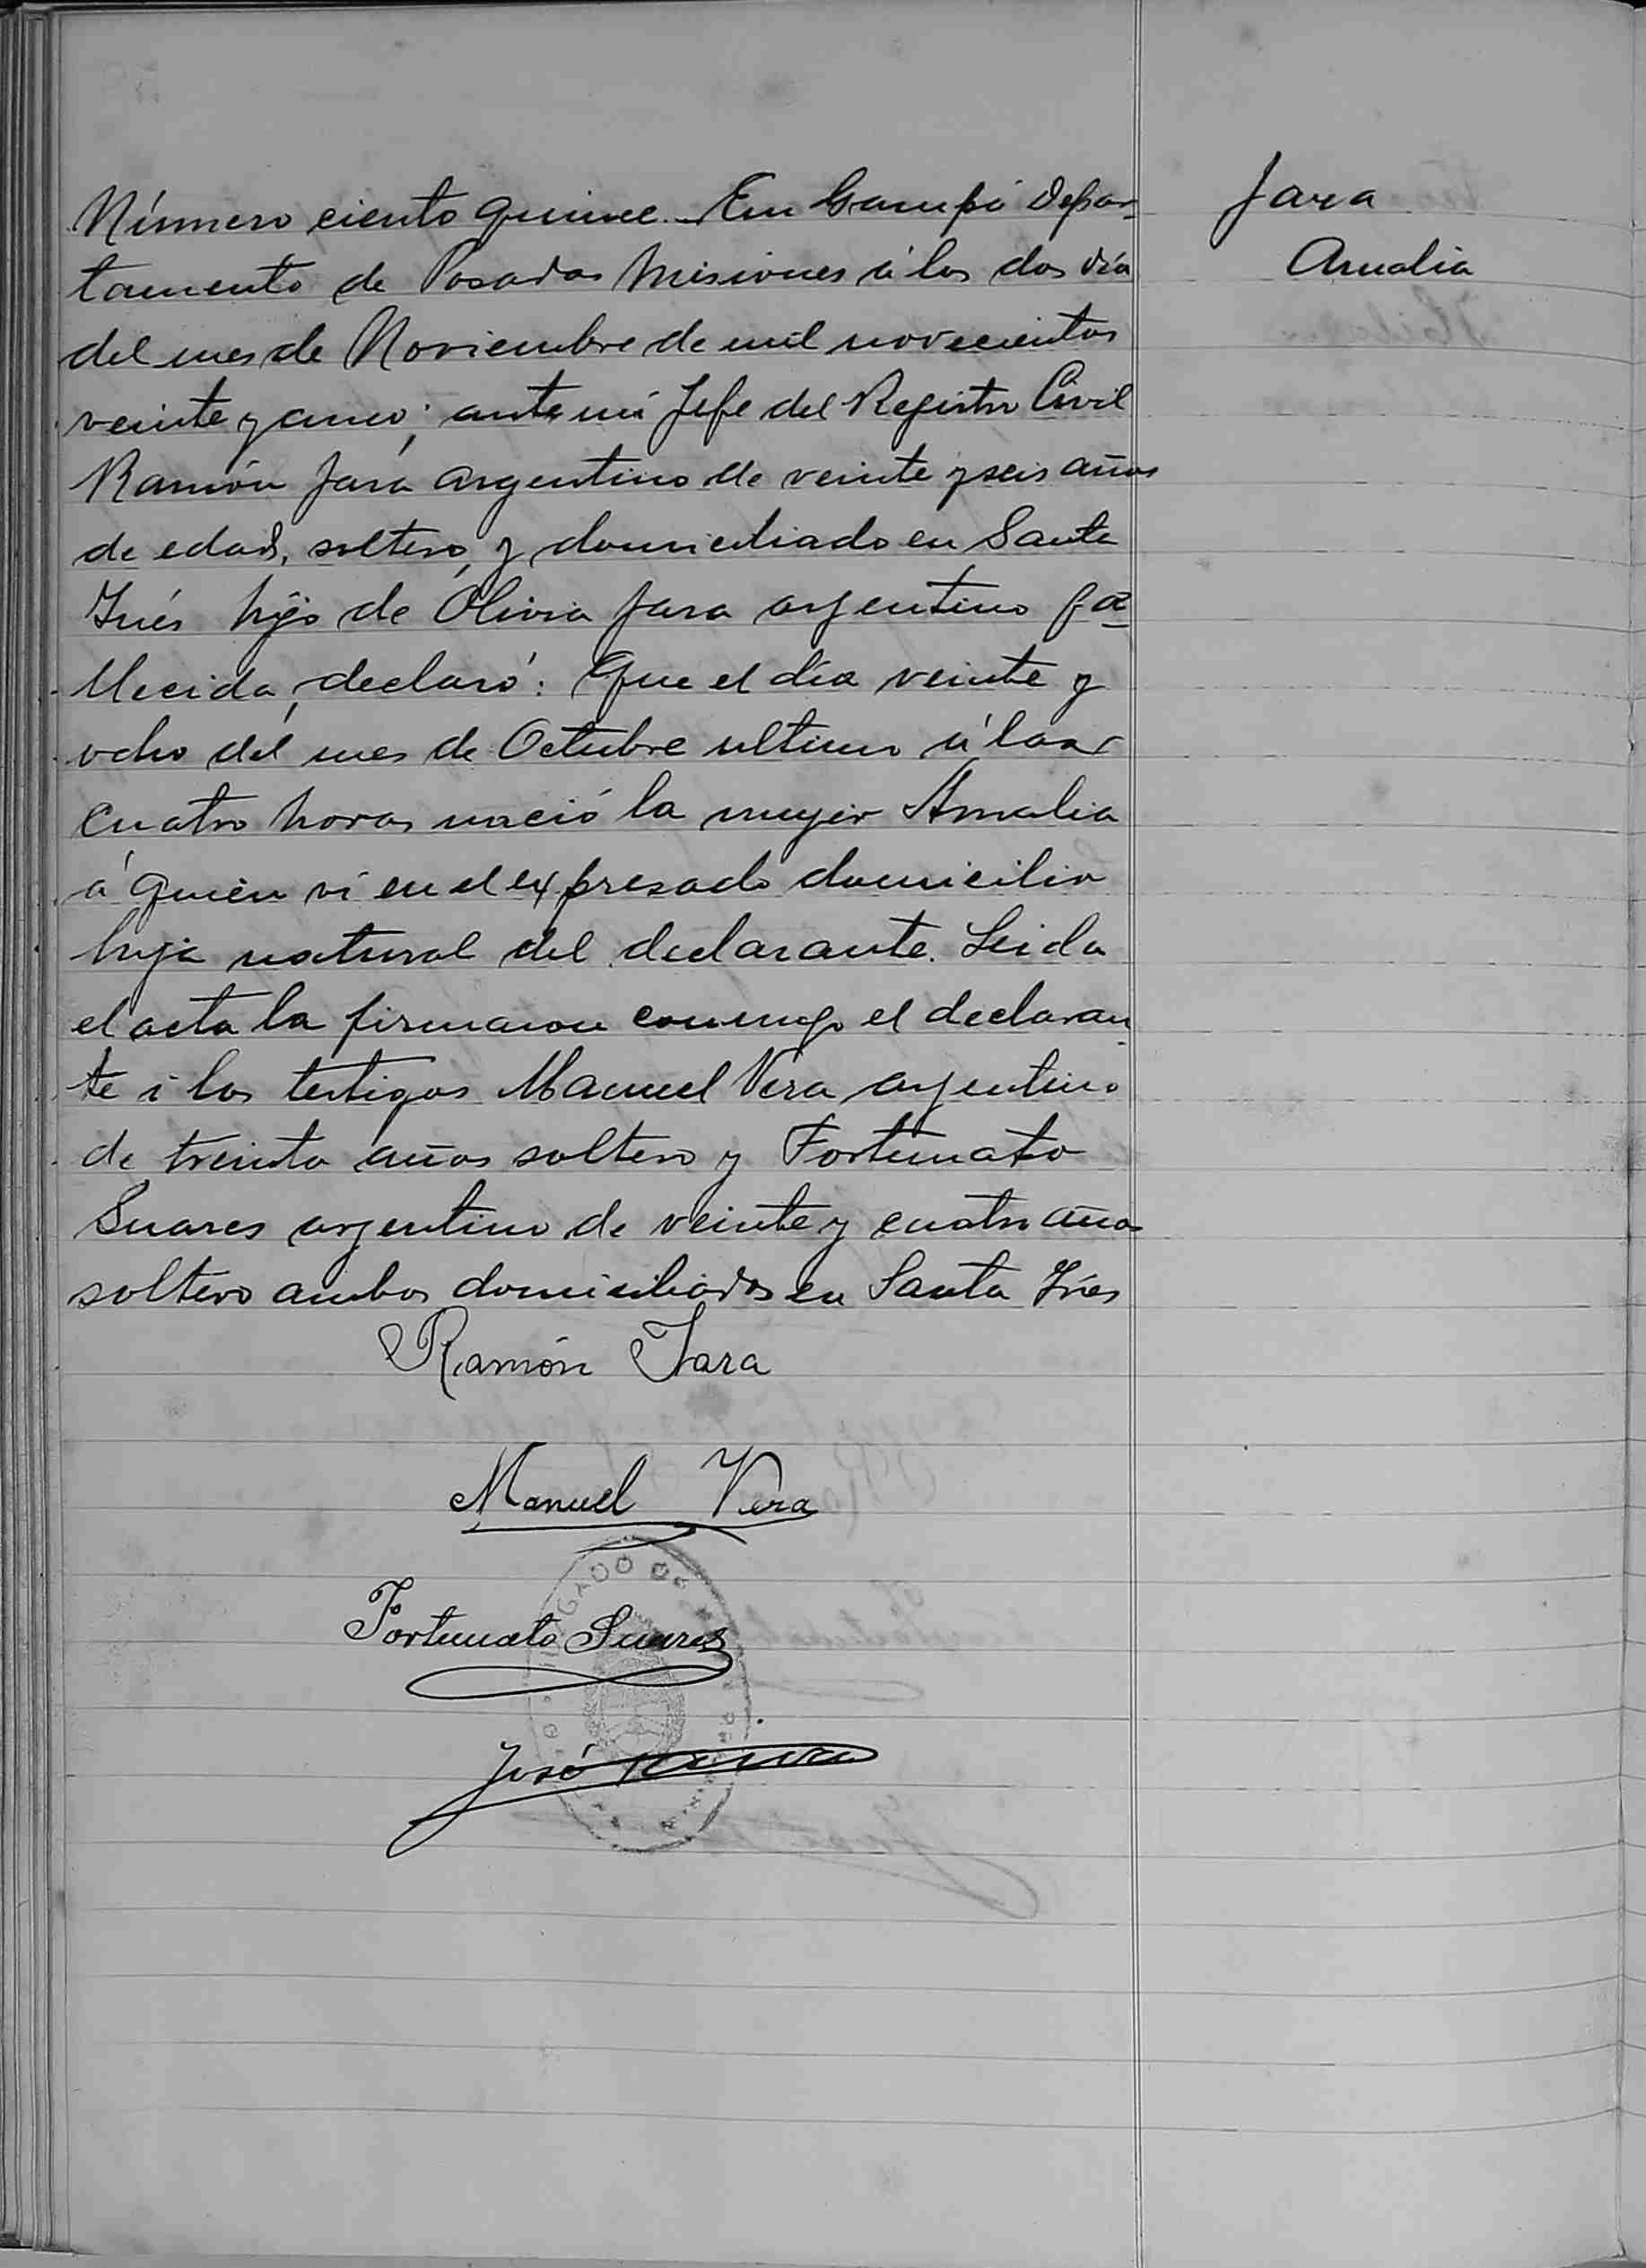 Jara
Amalia
Número ciento quince. En Garupá Depar-
tamento de Posadas Misiones á los dos día
del mes de Noviembre de mil novecientos
veinte y cinco; ante mi Jefe del Registro Civil
Ramón Jara argentino de veinte y seis años
de edad, soltero, y domiciliado en Santa
Inés hijo de Olivia Jara argentino fa-
llecida, declaró: Que el día veinte y
ocho del mes de Octubre ultimo á las
cuatro horas nació la mujer Amalia
á quién ví en el expresado domicilio
hija natural del declarante. Leida
el acta la firmaron conmigo el declaran-
te i los testigos Manuel Vera argentino
de treinta años soltero y Fortunato
Suares argentino de veinte y cuatro años
soltero ambos domiciliados en Santa Inés
Ramón Jara
Manuel Vera
Fortunato Suares
José